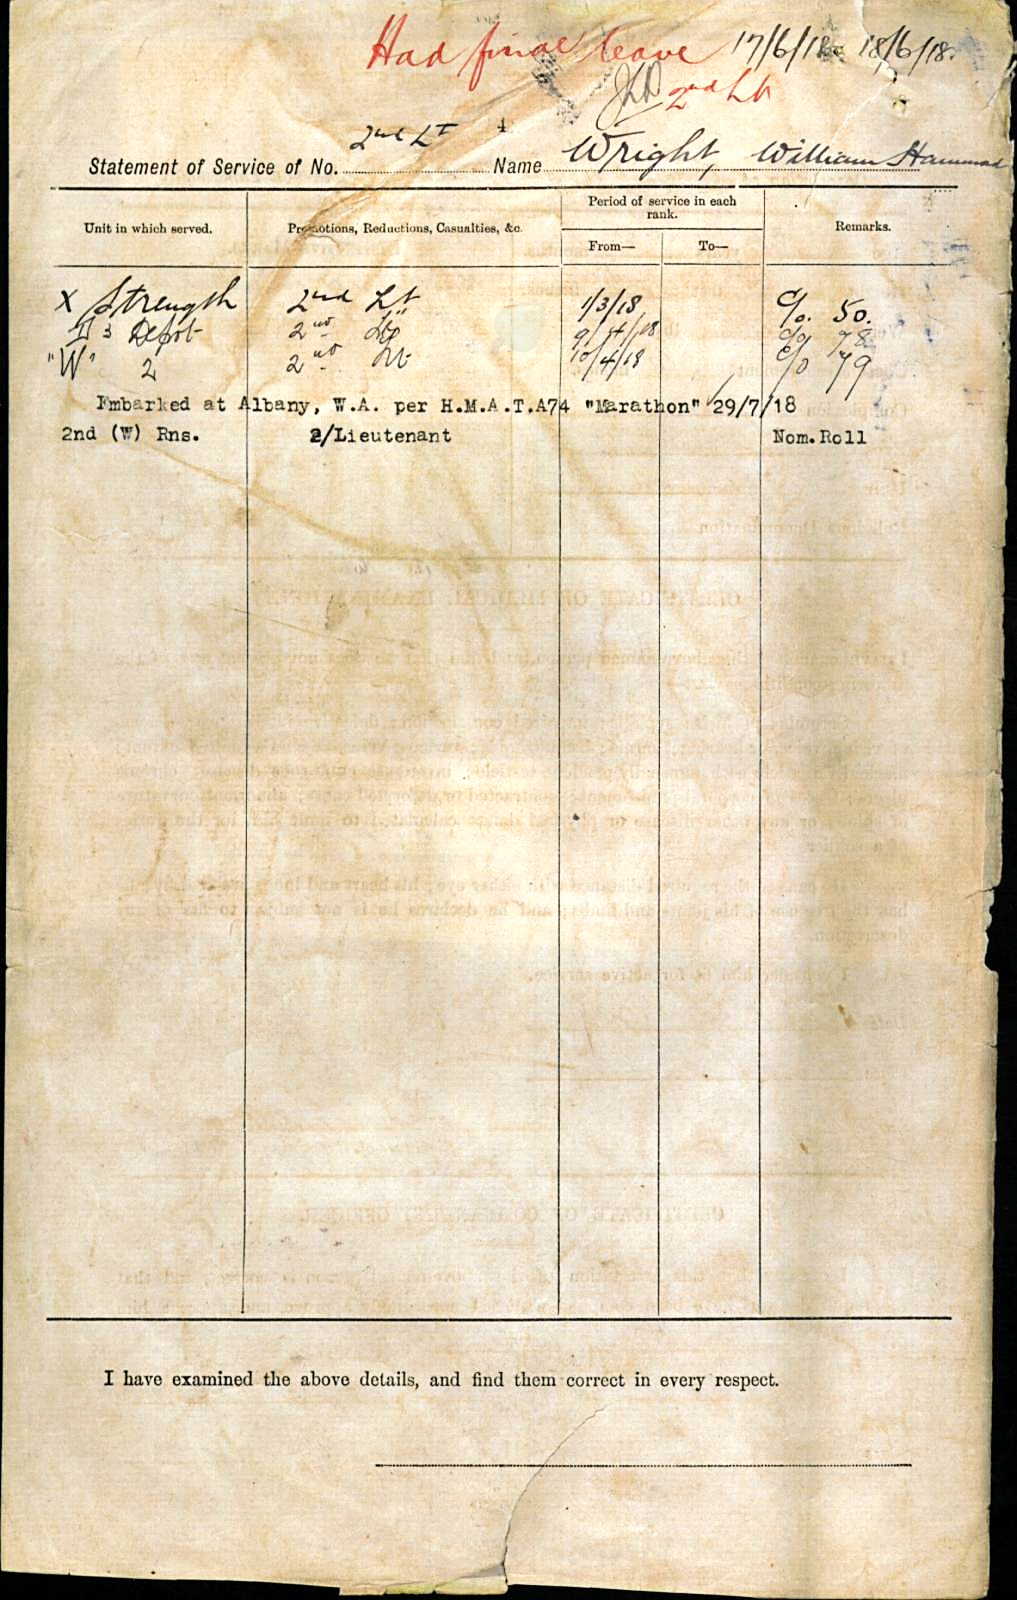 Had final leave 17/6/18. 18/6/18.
2nd Lt
2nd Lt 4
Statement of Service of No. Name Wright, William Hammond
Unit in which served. Promotions, Reductions, Casualties, &c. Period of service in each rank. Remarks.
From— To—
X Strength 2nd Lt 1/3/18 C/o. 50.
Depot 2nd Lt 9/4/18 C/o 78
"W" 2 2nd Lt 10/4/18 C/o 79
Embarked at Albany, W.A. per H.M.A.T.A74 "Marathon" 29/7/18
2nd (W) Rns. 2/Lieutenant Nom.Roll
I have examined the above details, and find them correct in every respect.